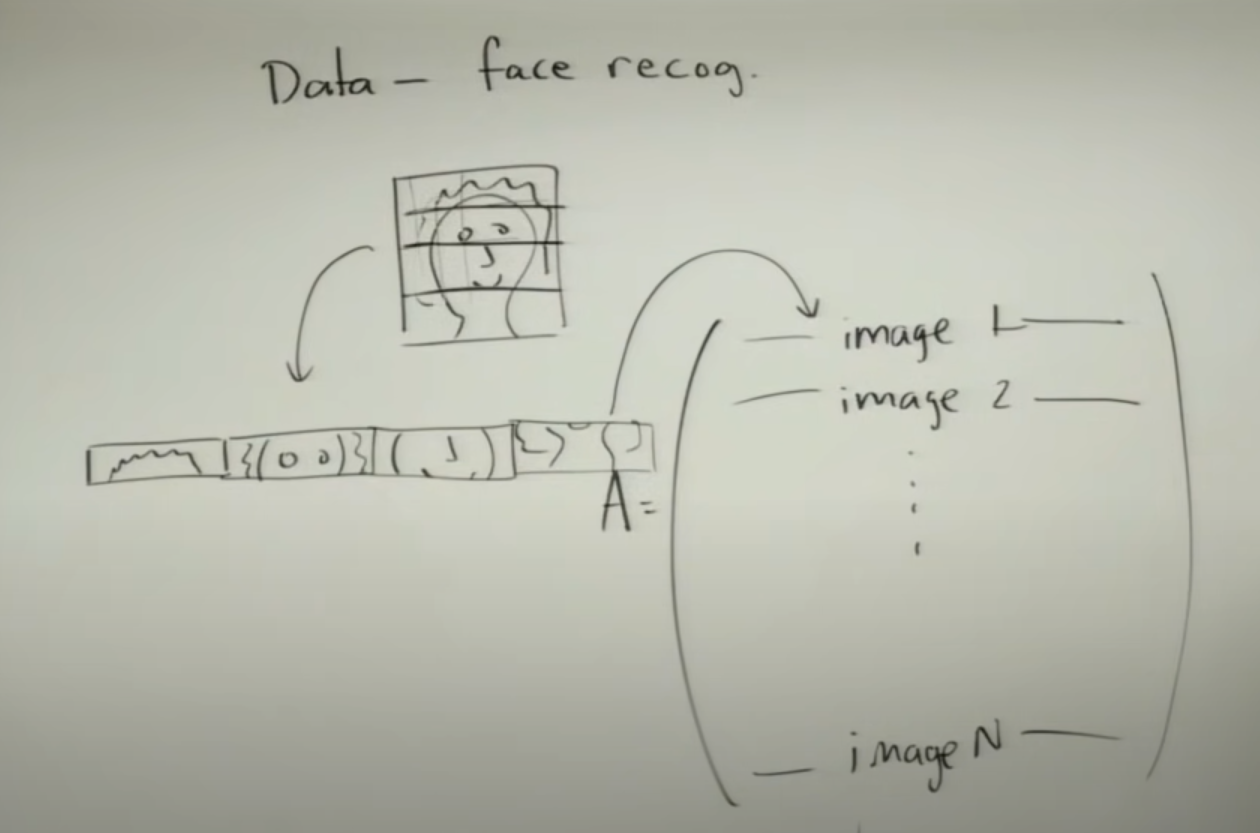 Data – face recog.
image 1
image 2
A =
image N